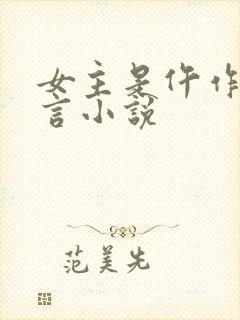 女主是仵作
言小说
范美先